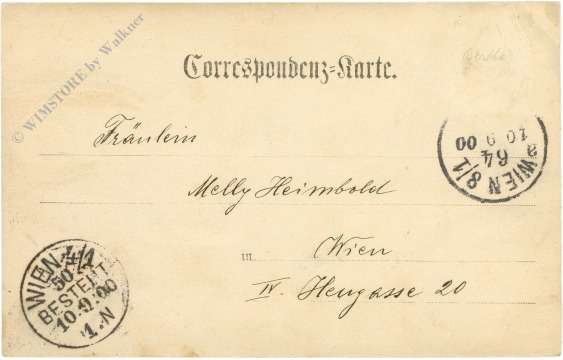 © WIMSTORE by Walkner
Correspondenz-Karte.
Fräulein
Melly Heimbold
in Wien
IV. Heugasse 20
WIEN 8/1 a
64
10 9 00
WIEN 4/1
50
BESTELLT
10.9.00
1.N